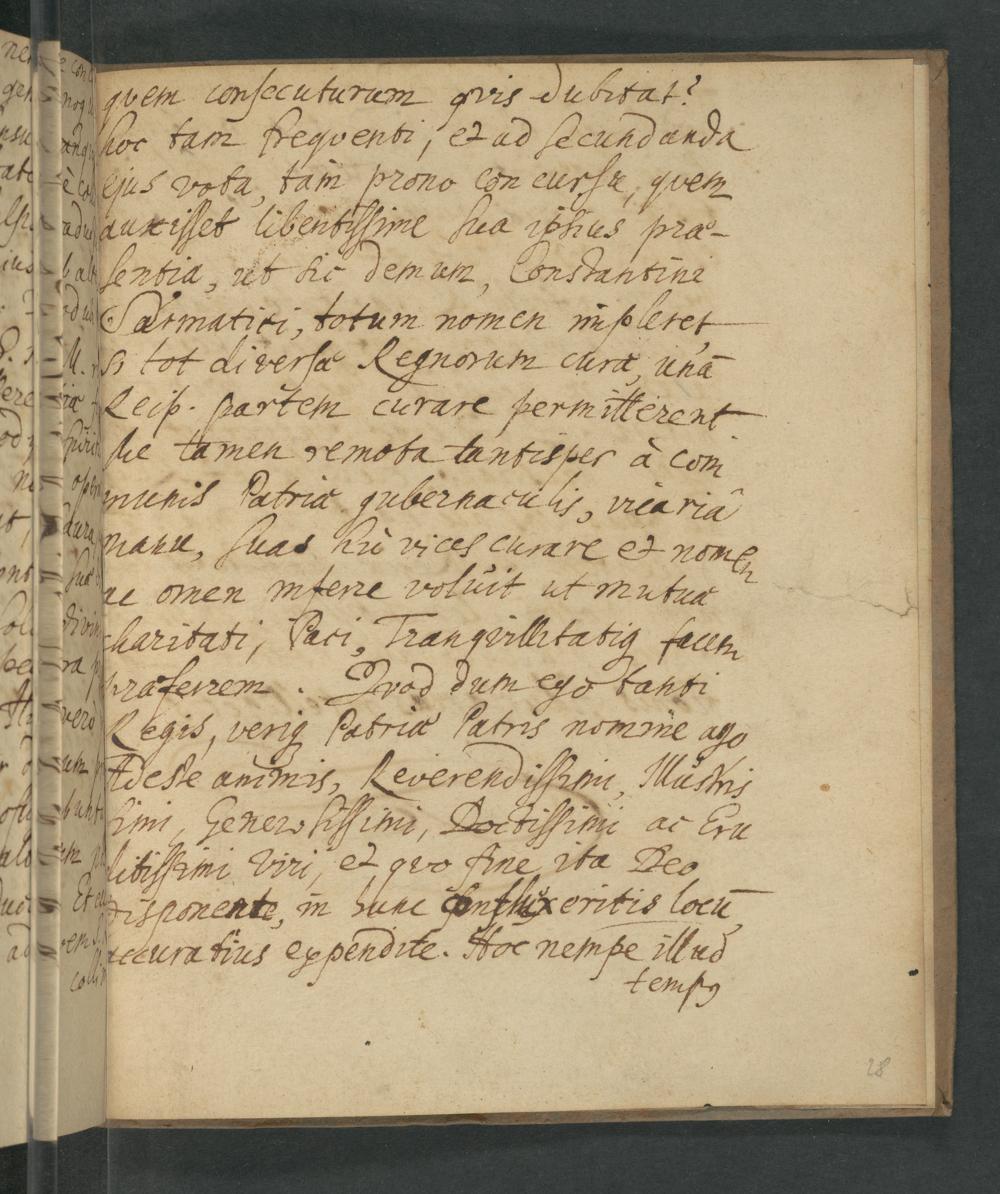 quem consecuturum qvis dubitat?
hoc tam freqventi, et ad secundanda
ejus vota, tàm prono concursu, quem
auxisset libentissime sua ipsius præ-
sentia, ut sic demum, Constantini
Sarmatici, totum nomen impleret,
si tot diversæ Regnorum curæ, unâ
Reip. partem curare permitterent
sic tamen remota tantisper à com
munis Patriæ gubernaculis, vicariâ
manu, suas hîc vices curare et nomen
ac omen inferre voluit ut mutuæ
charitati, Paci, Tranqvillitatiq facem
præferrem. Qvod dum ego tanti
Regis, veriq Patriæ Patris nomine ago
Adeste animis, Reverendissimi, Illustris
simi, Generosissimi, Doctissimi ac Eru
ditissimi Viri, et qvo fine ita Deo
disponente, in hunc confluxeritis locū
accuratius expendite. Hoc nempe illud
temp9
28